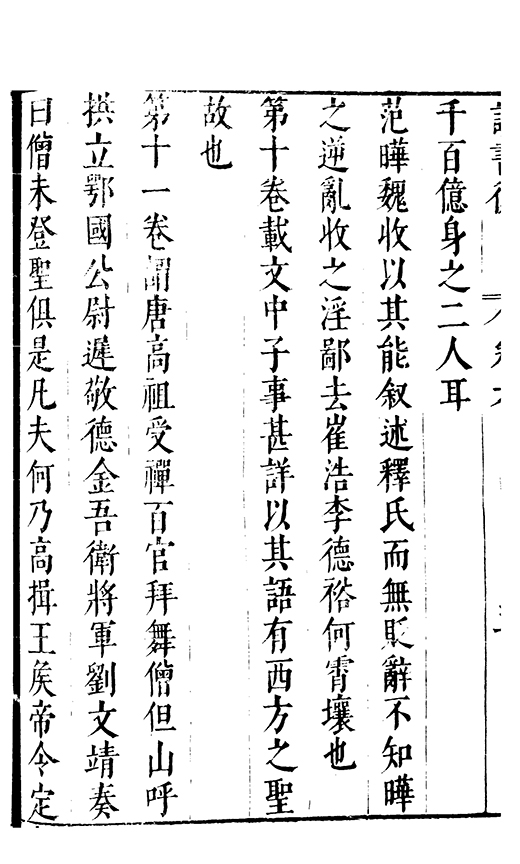 千百億身之二人耳
范曄魏收以其能叙述釋氏而無貶辭不知曄
之逆亂收之淫鄙去崔浩李德裕何霄壤也
第十卷載文中子事甚詳以其語有西方之聖
故也
第十一卷謂唐高祖受禪百官拜舞僧但山呼
拱立鄂國公尉遲敬德金吾衛將軍劉文靖奏
曰僧未登聖俱是凡夫何乃高揖王矦帝令定